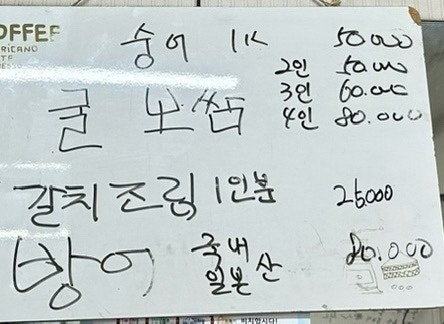 OFFEE
RICANO
숭어 1K 50000
2인 50.000
굴 보쌈 3인 60.000
4인 80.000
갈치조림 1인분 25000
방어 국내 일본 산 80.000